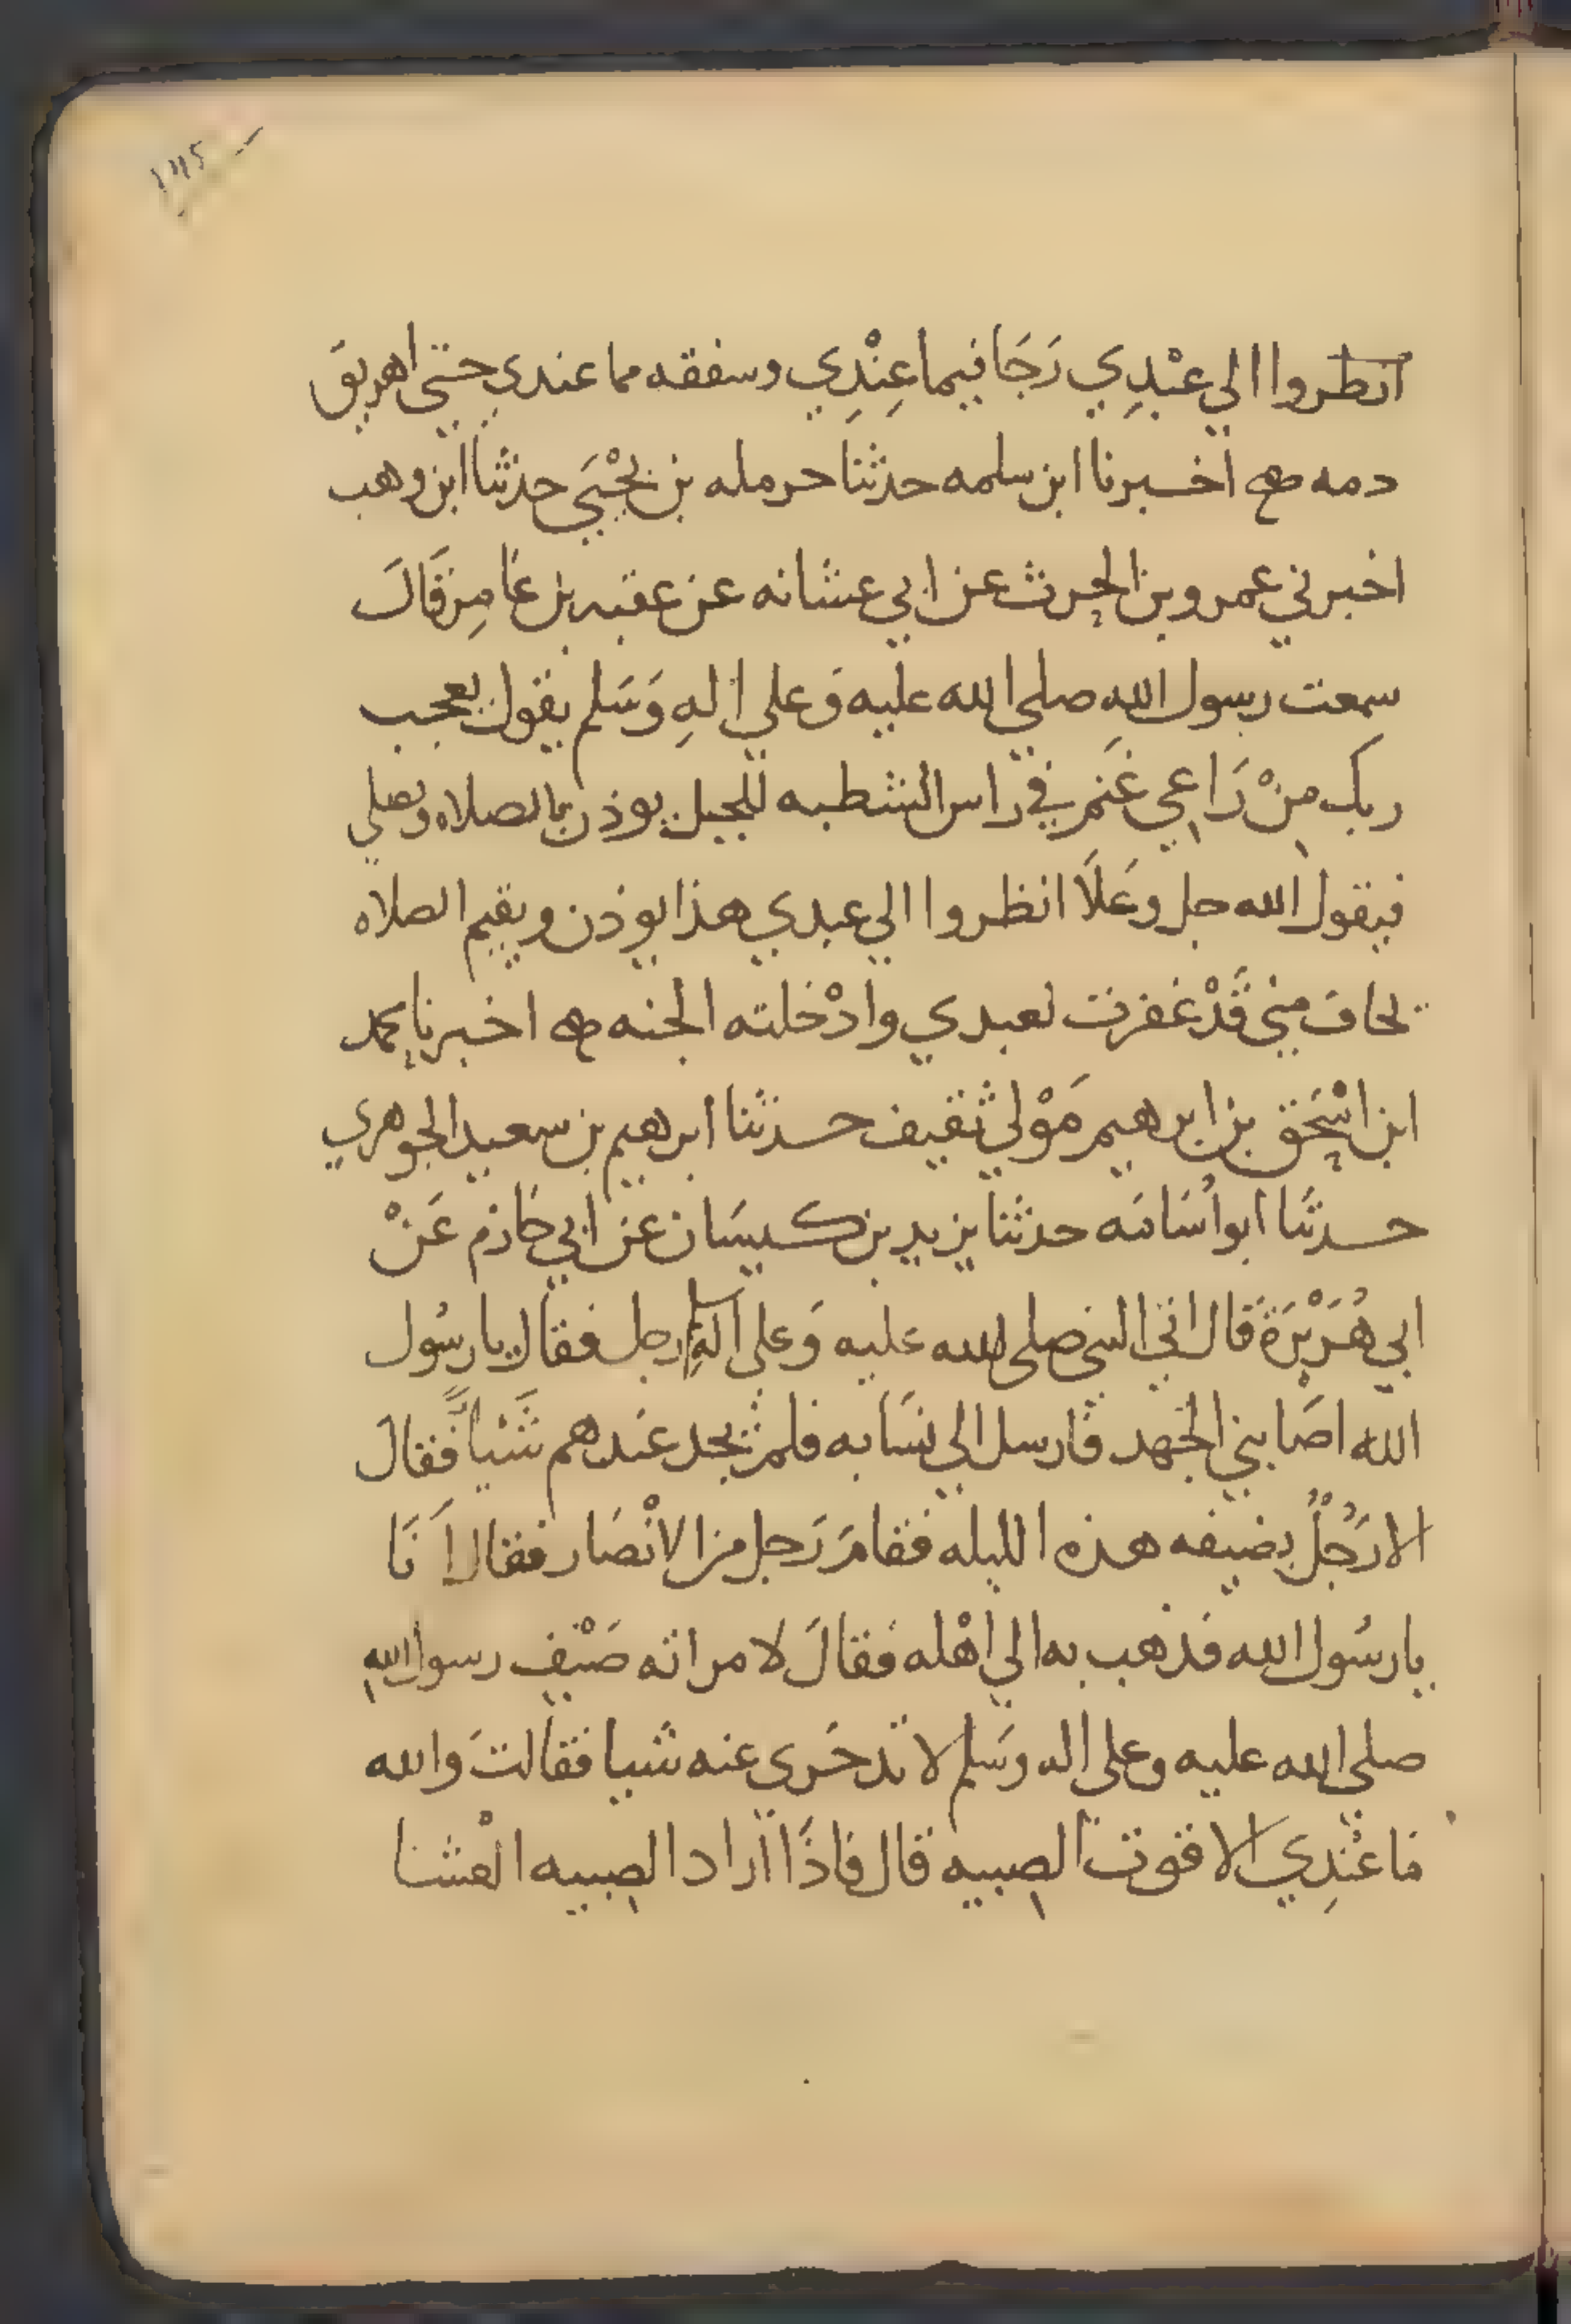 انظروا الي عبْدِي رَجَا فيما عِنْدِي وسفقه مما عندي حتى اهريقَ
دمه صح اخبرنا ابن سلمه حدثنا حرمله بن يحْيَى حدثنا ابن وهب
اخبرني عمرو بن الحرث عن ابي عشانه عن عقبه بن عَامِر قَالَ
سمعت رسول اللهِ صلى الله عليه وَعلي الهِ وَسَلم يقول يعجب
ربك مِنْ رَاعِي غَنَم في راس الشطبه للجبل يوذن بالصلاه ويصلي
فيقول الله جل وعَلَا انظروا الي عبدي هذا يوذن ويقيم الصلاه
يخاف مني قَدْ غفرت لعبدي وادْخلته الجنه صح اخبرنا محمد
ابن اسْحَق بن ابرهيم مَوْلي ثقيف حدثنا ابرهيم بن سعيد الجوهري
حدثنا ابو اُسَامَه حدثنا يزيد بن كيسَان عن ابي حَازم عَنْ
ابي هُرَيْرَة قَال اتى النبي صلى الله عليه وَعلى الهِ وسلم رجل فقال يا رسُول
الله اصَابني الجَهد فَارسل الي نسَايه فلم يجد عندهم شَيْاً فقال
الا رَجُلٌ يضيفه هذه الليله فقامَ رَجل من الانْصَار فقال اَنَا
يا رسُول الله فذهب به الي اهْله فقالَ لامراته ضَيْف رسول اللهِ
صلى الله عليه وعلى اله وسَلم لا تدخَرى عنه شَيا فقالتَ والله
مَا عنْدِي الا قوت الصبيه قال فاذَا اراد الصبيه العْشا